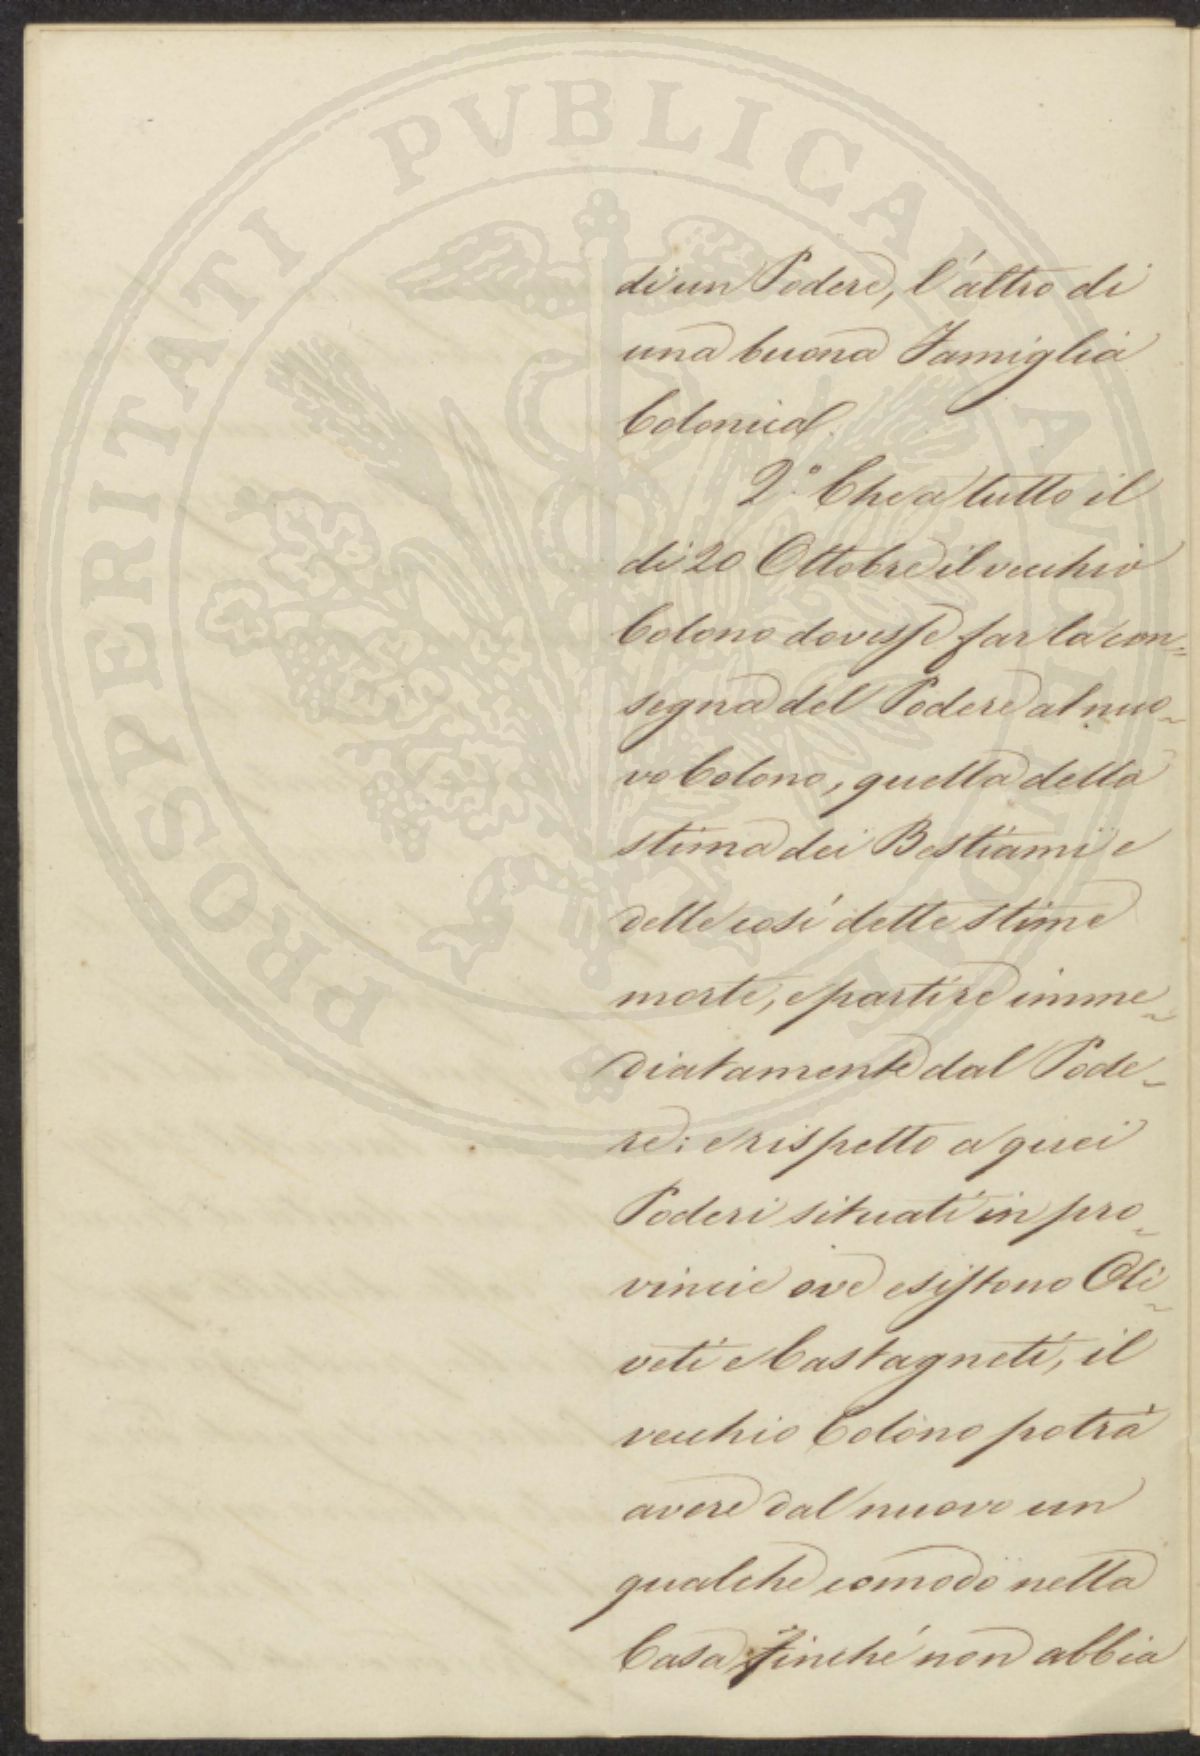 PROSPERITATI PVBLICAE AVGENDAE
di un Podere, l'altro di
una buona Famiglia
Colonica.
2.° Che a tutto il
di 20 Ottobre il vecchio
Colono dovesse far la con=
segna del Podere al nuo-
vo Colono, quella della
stima dei Bestiami e
delle così dette stime
morte, e partire imme-
diatamente dal Pode-
re: e rispetto a quei
Poderi situati in pro-
vincie ove esistono Oli-
veti e Castagneti, il
vecchio Colono potrà
avere dal nuovo un
qualche comodo nella
Casa finché non abbia